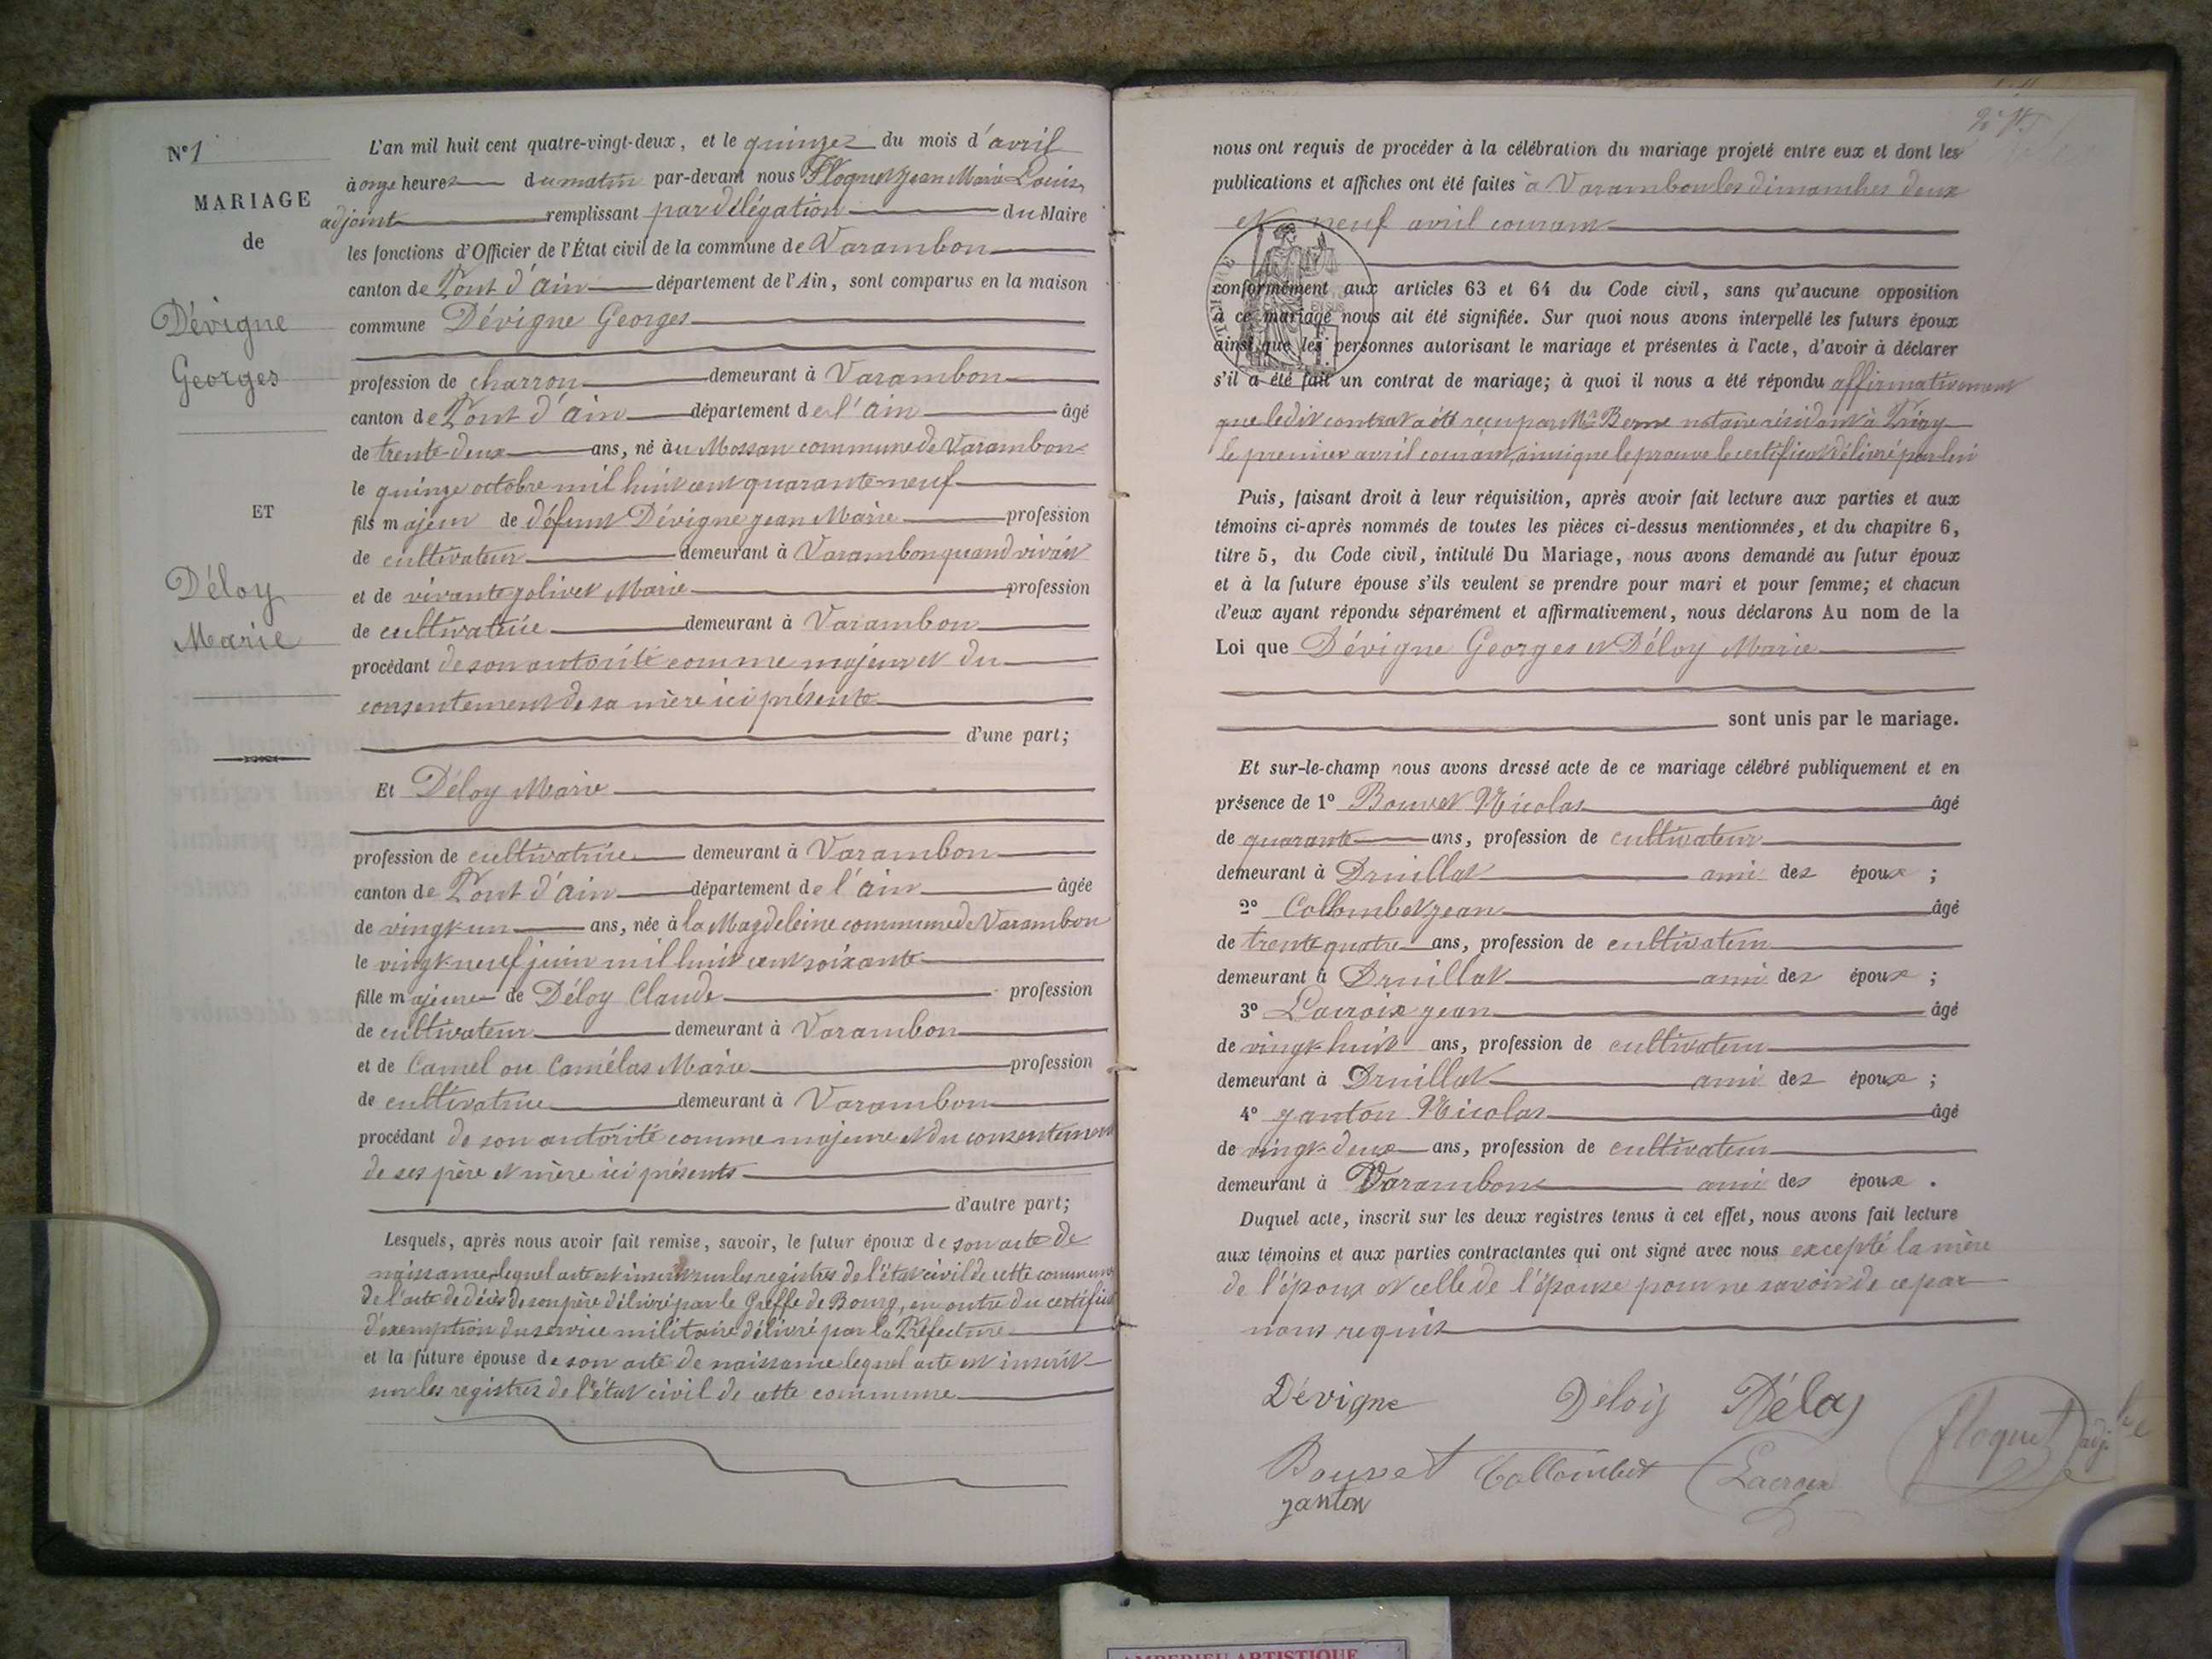 N° 1
MARIAGE
de
Dévigne
Georges
ET
Déloy
Marie
L'an mil huit cent quatre-vingt-deux, et le quinze du mois d'avril
à onze heures du matin par-devant nous Floquet Jean Marie Louis
adjoint remplissant par délégation du Maire
les fonctions d'Officier de l'État civil de la commune de Varambon
canton de Pont d'Ain département de l'Ain, sont comparus en la maison
commune Dévigne Georges
profession de charron demeurant à Varambon
canton de Pont d'Ain département de l'Ain âgé
de trente-deux ans, né au Mossan commune de Varambon
le quinze octobre mil huit cent quarante-neuf
fils majeur de défunt Dévigne Jean Marie profession
de cultivateur demeurant à Varambon quand vivait
et de vivante Jolivet Marie profession
de cultivatrice demeurant à Varambon
procédant de son autorité comme majeur et du
consentement de sa mère ici présente
d'une part;
Et Déloy Marie
profession de cultivatrice demeurant à Varambon
canton de Pont d'Ain département de l'Ain âgée
de vingt-un ans, née à la Magdeleine commune de Varambon
le vingt-neuf juin mil huit cent soixante
fille majeure de Déloy Claude profession
de cultivateur demeurant à Varambon
et de Camel ou Camélas Marie profession
de cultivatrice demeurant à Varambon
procédant de son autorité comme majeure et du consentement
de ses père et mère ici présents
d'autre part;
Lesquels, après nous avoir fait remise, savoir, le futur époux de son acte de
naissance, lequel acte est inscrit sur les registres de l'état civil de cette commune
de l'acte de décès de son père délivré par le Greffe de Bourg, en outre du certificat
d'exemption du service militaire délivré par la Préfecture
et la future épouse de son acte de naissance lequel acte est inscrit
sur les registres de l'état civil de cette commune
nous ont requis de procéder à la célébration du mariage projeté entre eux et dont les
publications et affiches ont été faites à Varambon les dimanches deux
et neuf avril courant
conformément aux articles 63 et 64 du Code civil, sans qu'aucune opposition
à ce mariage nous ait été signifiée. Sur quoi nous avons interpellé les futurs époux
ainsi que les personnes autorisant le mariage et présentes à l'acte, d'avoir à déclarer
s'il a été fait un contrat de mariage; à quoi il nous a été répondu affirmativement
que ledit contrat a été reçu par Me Berne notaire résidant à Priay
le premier avril courant, ainsi que le prouve le certificat délivré par lui
Puis, faisant droit à leur réquisition, après avoir fait lecture aux parties et aux
témoins ci-après nommés de toutes les pièces ci-dessus mentionnées, et du chapitre 6,
titre 5, du Code civil, intitulé Du Mariage, nous avons demandé au futur époux
et à la future épouse s'ils veulent se prendre pour mari et pour femme; et chacun
d'eux ayant répondu séparément et affirmativement, nous déclarons Au nom de la
Loi que Dévigne Georges et Déloy Marie
sont unis par le mariage.
Et sur-le-champ nous avons dressé acte de ce mariage célébré publiquement et en
présence de 1° Bouvet Nicolas âgé
de quarante ans, profession de cultivateur
demeurant à Druillat ami des époux ;
2° Collombet Jean âgé
de trente quatre ans, profession de cultivateur
demeurant à Druillat ami des époux ;
3° Lacroix Jean âgé
de vingt-huit ans, profession de cultivateur
demeurant à Druillat ami des époux ;
4° Janton Nicolas âgé
de vingt-deux ans, profession de cultivateur
demeurant à Varambon ami des époux .
Duquel acte, inscrit sur les deux registres tenus à cet effet, nous avons fait lecture
aux témoins et aux parties contractantes qui ont signé avec nous excepté la mère
de l'époux et celle de l'épouse pour ne savoir de ce par
nous requis
Dévigne Deloiy Déloy
Bouvet Collombet Lacroix Floquet adj.
Janton
AMBERIEU ARTISTIQUE